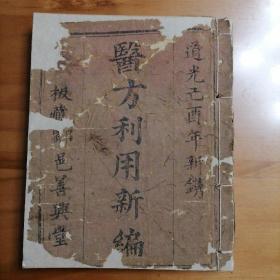 道光己酉年新鐫
醫方利用新編
板藏邑善興堂